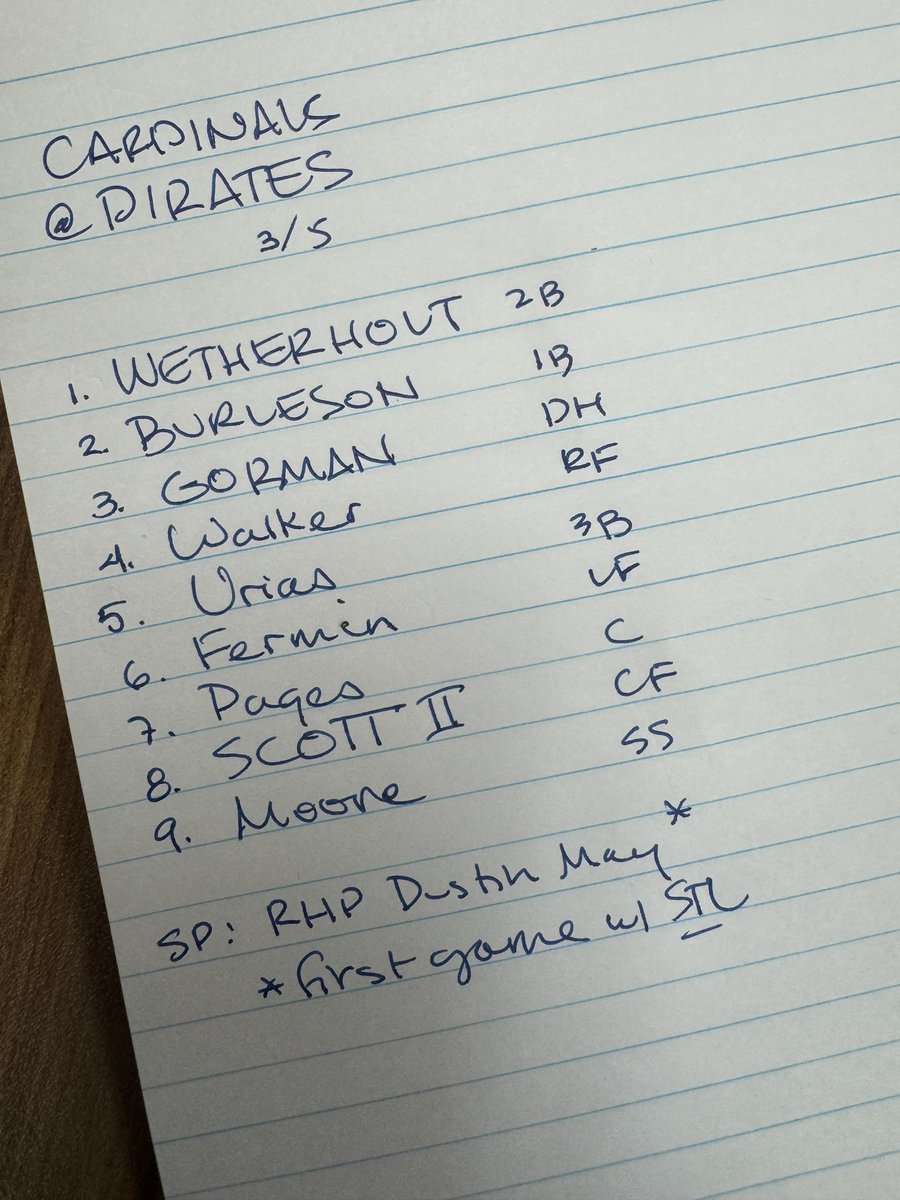 CARDINALS
@ PIRATES
3/5
1. WETHERHOLT 2B
2. BURLESON 1B
3. GORMAN DH
4. Walker RF
5. Urias 3B
6. Fermin LF
7. Pages C
8. SCOTT II CF
9. Moore SS
SP: RHP Dustin May*
* first game w/ STL